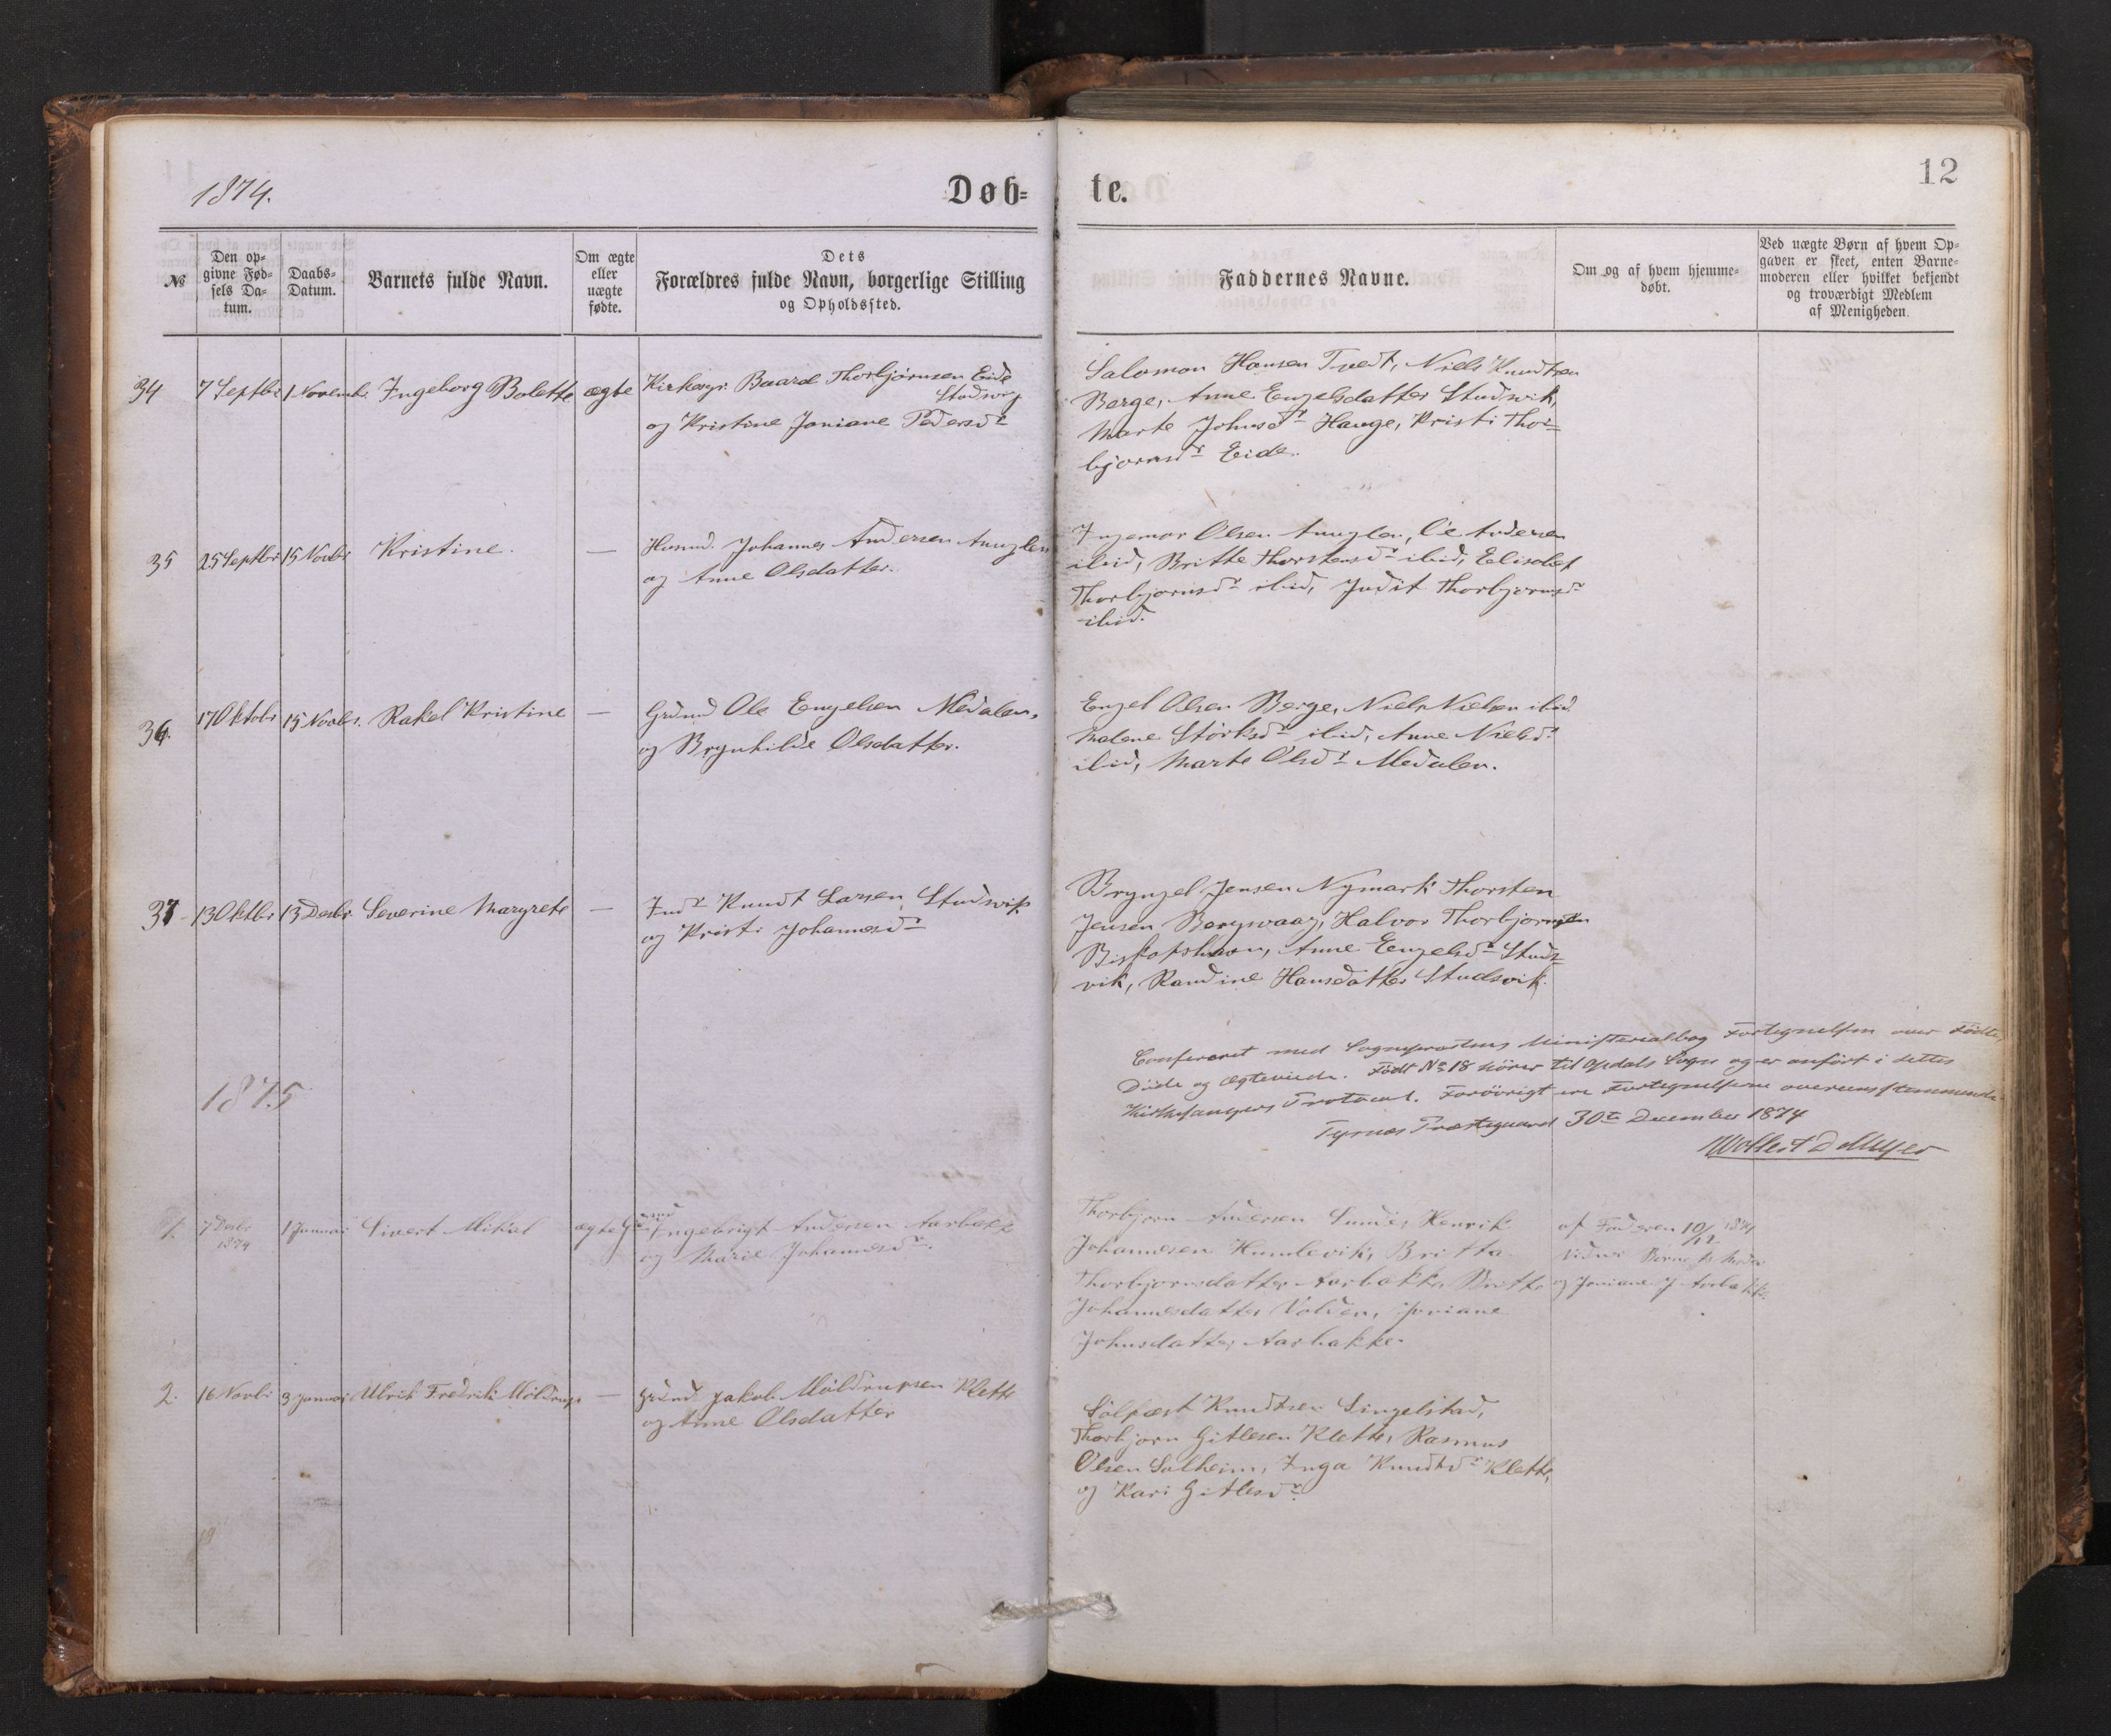 1874.
Døb=
te.
12
№
Den op-
givne Fød-
sels Da-
tum.
Daabs-
Datum.
Barnets fulde Navn.
Om ægte
eller
uægte
fødte.
Dets
Forældres fulde Navn, borgerlige Stilling
og Opholdssted.
Faddernes Navne.
Om og af hvem hjemme-
døbt.
Ved uægte Børn af hvem Op-
gaven er skeet, enten Barne-
moderen eller hvilket bekjendt
og troværdigt Medlem
af Menigheden.
34 7 Septbr 1 Novembr Ingeborg Bolette ægte Kirkesgr. Baard Thorbjørnsen Eide
Studsvig
og Kristine Joniane Pedersdr
Salomon Hansen Tvedt, Niels Knudtsen
Berge, Anne Engelsdatter Studsvik,
Marte Johnsdr Hauge, Kristi Thor=
bjørnsdr Eide.
35 25 Septbr 15 Novbr Kristine. — Husmd. Johannes Andersen Anuglen
og Anne Olsdatter.
Ingemar Olsen Anuglen, Ole Andersen
ibid, Britte Thorstensdr ibid, Elisabet
Thorbjørnsdr ibid, Judit Thorbjørnsdr
ibid.
36. 17 Oktobr 15 Novbr. Rakel Kristine — Grdmd Ole Engelsen Medalen,
og Brynhilde Olsdatter.
Engel Olsen Berge, Niels Nielsen ibid.
Malene Størksdr ibid, Anne Nielsdr
ibid, Marte Olsdr Medalen.
37 13 Oktbr 13 Decbr Severine Margrete — Indr Knudt Larsen Studsvik
og Kristi Johannesdr
Bryngel Jensen Nymark Thorsten
Jensen Bergsvaag, Halvor Thorbjørnsen
Biskopshavn, Anne Engelsdr Studs=
vik, Randine Hansdatter Studsvik.
Confereret med Sognepræstens Ministerialbog Fortegnelsen over Fødte,
Døde og Ægteviede. Født No 18 hører til Opdals Sogn og er anført i dettes
Kirkesangers Protocol. Forøvrigt ere Fortegnelserne overensstemmende.
Tysnes Præstegaard 30te December 1874
1875
1. 7 Decbr 1 Januar Sivert Mikal ægte Grdmd Ingebrigt Andersen Aarbakke
1874
og Marie Johannesdr.
Thorbjørn Andersen Sunde, Henrik
Johannesen Humlevik, Britta
Thorbjørnsdatter Aarbakke, Britte
Johannesdatter Volden, Joniane
Johnsdatter Aarbakke.
af Faderen 10/12 1874
og Joniane J. Aarbakke.
2. 16 Novbr 3 Januar Ulrik Fredrik Møldrup — Grdmd Jakob Møldrupsen Klette
og Anne Olsdatter
Sølfæst Knudtsen Singelstad,
Thorbjørn Gitlesen Klette, Rasmus
Olsen Solheim, Inga Knudtsdr Klette,
og Kari Gitlesdr.